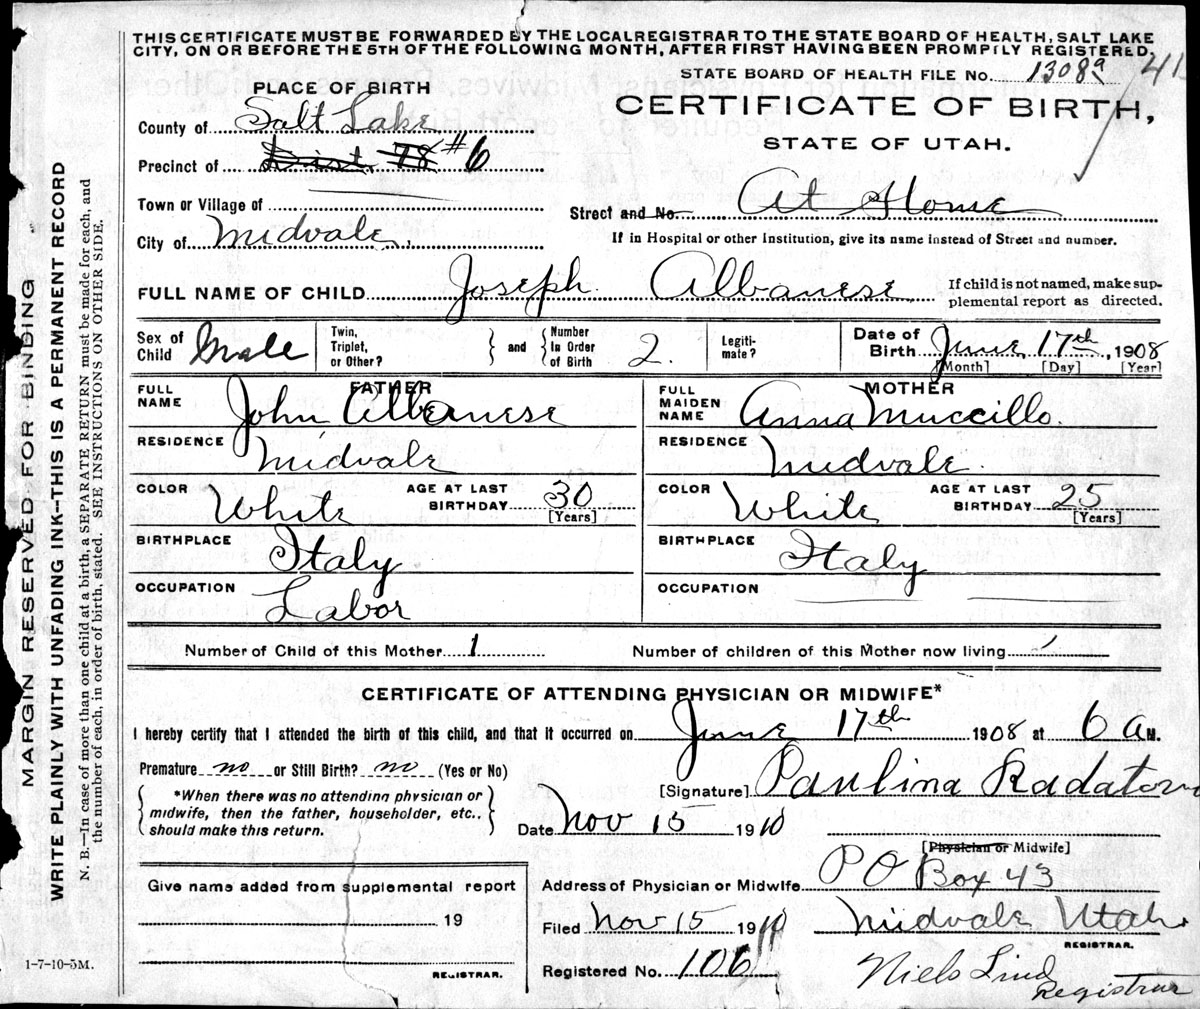 THIS CERTIFICATE MUST BE FORWARDED BY THE LOCALREGISTRAR TO THE STATE BOARD OF HEALTH, SALT LAKE
CITY, ON OR BEFORE THE 5TH OF THE FOLLOWING MONTH, AFTER FIRST HAVING BEEN PROMPTLY REGISTERED.
STATE BOARD OF HEALTH FILE No. 1308a 41
PLACE OF BIRTH
CERTIFICATE OF BIRTH,
STATE OF UTAH.
County of Salt Lake
Precinct of Dist. 78 #6
Town or Village of
Street and No. At Home
City of Midvale,
If in Hospital or other Institution, give its name instead of Street and number.
FULL NAME OF CHILD Joseph Albanese
If child is not named, make sup-
plemental report as directed.
Sex of Child Male
Twin, Triplet, or Other?
and
Number In Order of Birth 2.
Legiti-mate?
Date of Birth June 17th, 1908
[Month] [Day] [Year]
FATHER
FULL NAME John Albanese
RESIDENCE Midvale
COLOR White AGE AT LAST BIRTHDAY 30 [Years]
BIRTHPLACE Italy
OCCUPATION Labor
MOTHER
FULL MAIDEN NAME Anna Muccillo.
RESIDENCE Midvale.
COLOR White AGE AT LAST BIRTHDAY 25 [Years]
BIRTHPLACE Italy
OCCUPATION
Number of Child of this Mother 1
Number of children of this Mother now living 1
CERTIFICATE OF ATTENDING PHYSICIAN OR MIDWIFE*
I hereby certify that I attended the birth of this child, and that it occurred on June 17th 1908 at 6 A M.
Premature no or Still Birth? no (Yes or No)
*When there was no attending physician or
midwife, then the father, householder, etc.,
should make this return.
[Signature] Paulina
Date Nov 15 1910
[Physician or Midwife]
Address of Physician or Midwife P O Box 43
Midvale Utah
Give name added from supplemental report
19
REGISTRAR.
Filed Nov 15 1910
REGISTRAR.
Registered No. 106
Niels Lind
Registrar
1-7-10-5M.
MARGIN RESERVED FOR BINDING
WRITE PLAINLY WITH UNFADING INK—THIS IS A PERMANENT RECORD
N. B.—In case of more than one child at a birth, a SEPARATE RETURN must be made for each, and
the number of each, in order of birth, stated. SEE INSTRUCTIONS ON OTHER SIDE.